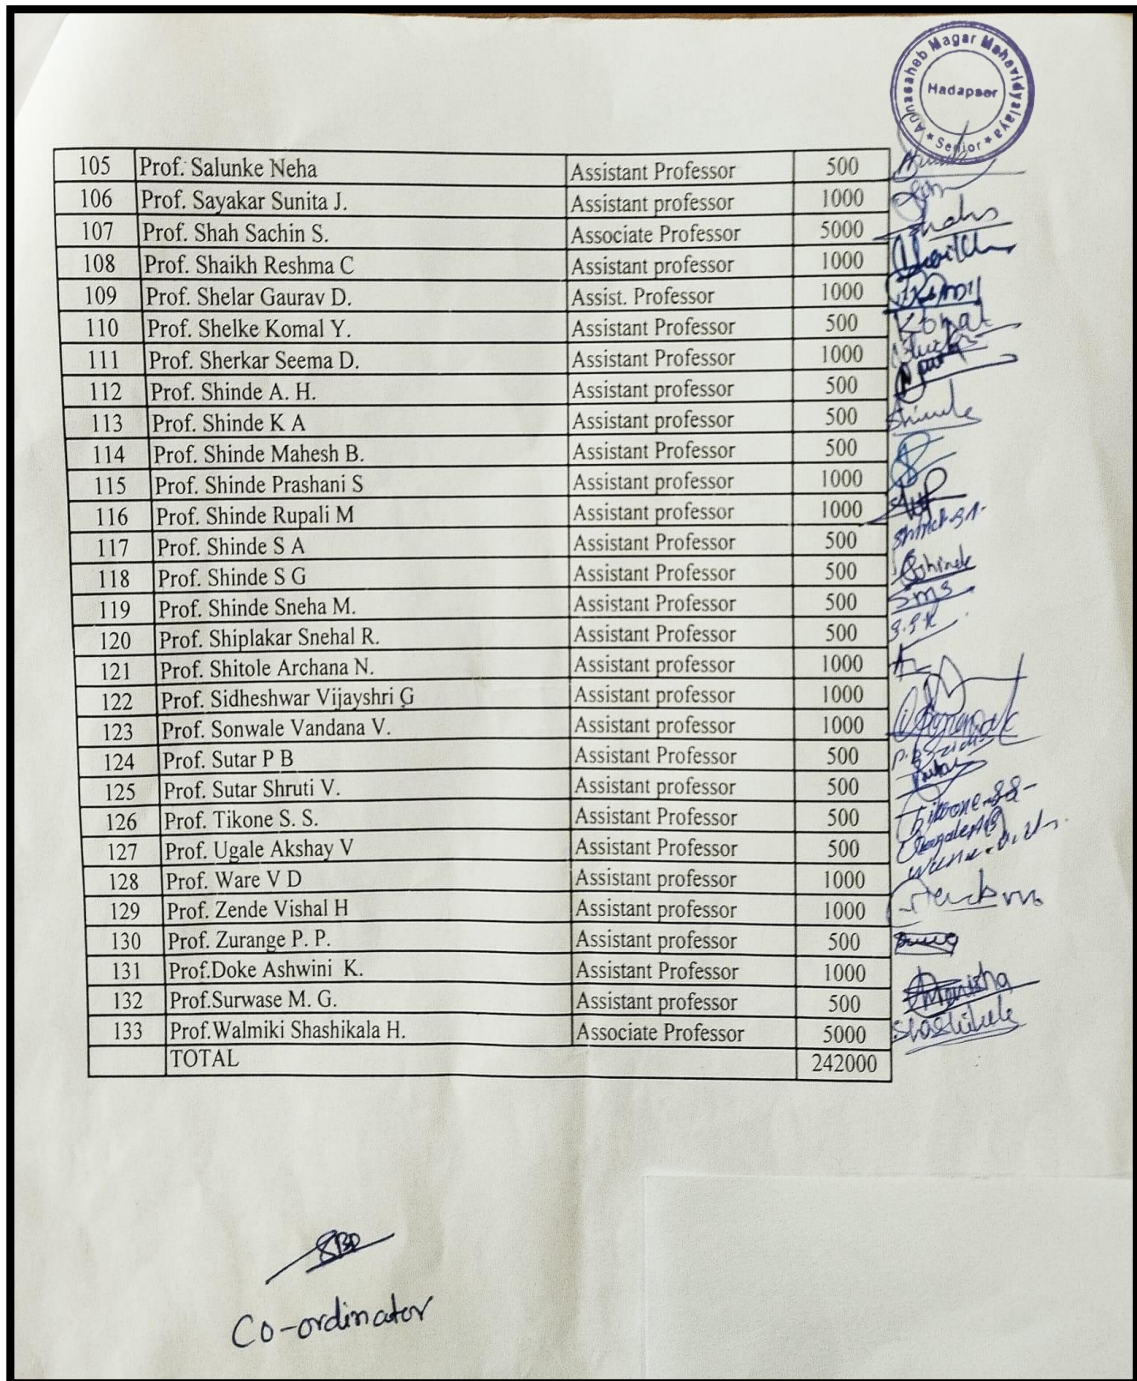 Annasaheb Magar Mahavidyalaya
Hadapser
* Senior *
105 Prof. Salunke Neha Assistant Professor 500
106 Prof. Sayakar Sunita J. Assistant professor 1000
107 Prof. Shah Sachin S. Associate Professor 5000
108 Prof. Shaikh Reshma C Assistant professor 1000
109 Prof. Shelar Gaurav D. Assist. Professor 1000
110 Prof. Shelke Komal Y. Assistant Professor 500 Komal
111 Prof. Sherkar Seema D. Assistant Professor 1000
112 Prof. Shinde A. H. Assistant professor 500
113 Prof. Shinde K A Assistant professor 500 Shinde
114 Prof. Shinde Mahesh B. Assistant Professor 500
115 Prof. Shinde Prashani S Assistant professor 1000
116 Prof. Shinde Rupali M Assistant professor 1000
117 Prof. Shinde S A Assistant Professor 500
118 Prof. Shinde S G Assistant Professor 500 Shinde
119 Prof. Shinde Sneha M. Assistant Professor 500 Sms
120 Prof. Shiplakar Snehal R. Assistant Professor 500
121 Prof. Shitole Archana N. Assistant professor 1000
122 Prof. Sidheshwar Vijayshri G Assistant professor 1000
123 Prof. Sonwale Vandana V. Assistant professor 1000
124 Prof. Sutar P B Assistant Professor 500
125 Prof. Sutar Shruti V. Assistant Professor 500
126 Prof. Tikone S. S. Assistant Professor 500 Tikone-SS-
127 Prof. Ugale Akshay V Assistant Professor 500
128 Prof. Ware V D Assistant professor 1000
129 Prof. Zende Vishal H Assistant professor 1000
130 Prof. Zurange P. P. Assistant professor 500
131 Prof.Doke Ashwini K. Assistant Professor 1000
132 Prof.Surwase M. G. Assistant professor 500 Manisha
133 Prof.Walmiki Shashikala H. Associate Professor 5000
TOTAL 242000
Co-ordinator